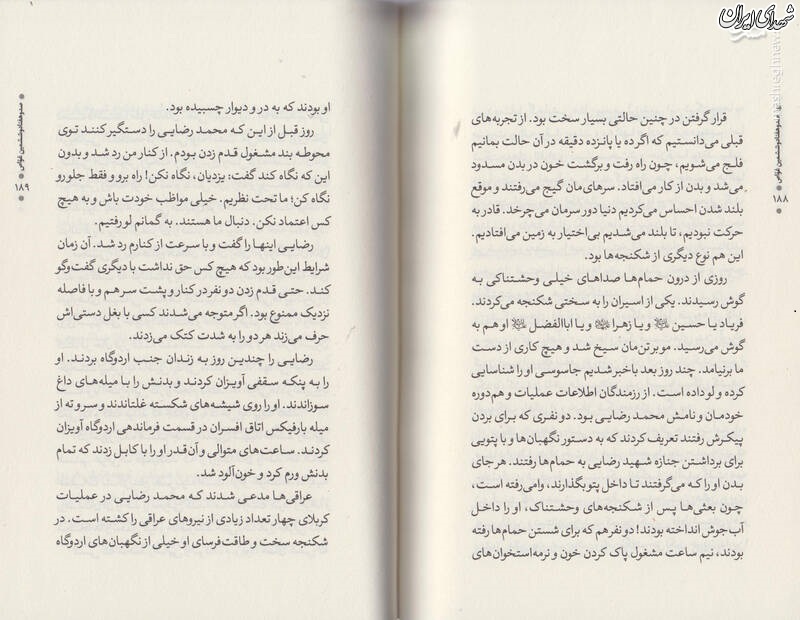 شهدای ایران
قرار گرفتن در چنین حالتی بسیار سخت بود. از تجربه‌های
قبلی می‌دانستیم که اگر ده یا پانزده دقیقه در آن حالت بمانیم
فلج می‌شویم، چون راه رفت و برگشت خون در بدن مسدود
می‌شد و بدن از کار می‌افتاد. سرهای‌مان گیج می‌رفتند و موقع
بلند شدن احساس می‌کردیم دنیا دور سرمان می‌چرخد. قادر به
حرکت نبودیم، تا بلند می‌شدیم بی‌اختیار به زمین می‌افتادیم.
این هم نوع دیگری از شکنجه‌ها بود.
روزی از درون حمام‌ها صداهای خیلی وحشتناکی به
گوش رسیدند. یکی از اسیران را به سختی شکنجه می‌کردند.
فریاد یا حسین و یا زهرا و یا اباالفضل او هم به
گوش می‌رسید. مو بر تن‌مان سیخ شد و هیچ کاری از دست
ما برنیامد. چند روز بعد باخبر شدیم جاسوسی او را شناسایی
کرده و لو داده است. از رزمندگان اطلاعات عملیات و هم‌دوره
خودمان و نامش محمد رضایی بود. دو نفری که برای بردن
پیکرش رفتند تعریف کردند که به دستور نگهبان‌ها و با پتویی
برای برداشتن جنازه شهید رضایی به حمام‌ها رفتند. هر جای
بدن او را که می‌گرفتند تا داخل پتو بگذارند، وامی‌رفته است،
چون بعثی‌ها پس از شکنجه‌های وحشتناک، او را داخل
آب‌جوش انداخته بودند! دو نفر هم که برای شستن حمام‌ها رفته
بودند، نیم ساعت مشغول پاک کردن خون و نرمه‌استخوان‌های
۱۸۸
او بودند که به در و دیوار چسبیده بود.
روز قبل از این که محمد رضایی را دستگیر کنند توی
محوطه بند مشغول قدم زدن بودم. از کنار من رد شد و بدون
این که نگاه کند گفت: یزدیان، نگاه نکن! راه برو و فقط جلو رو
نگاه کن؛ ما تحت نظریم. خیلی مواظب خودت باش و به هیچ
کس اعتماد نکن. دنبال ما هستند. به گمانم لو رفتیم.
رضایی اینها را گفت و با سرعت از کنارم رد شد. آن زمان
شرایط این‌طور بود که هیچ کس حق نداشت با دیگری گفت‌وگو
کند. حتی قدم زدن دو نفر در کنار و پشت سر هم و با فاصله
نزدیک ممنوع بود. اگر متوجه می‌شدند کسی با بغل دستی‌اش
حرف می‌زند هر دو را به شدت کتک می‌زدند.
رضایی را چندین روز به زندان جنب اردوگاه بردند. او
را به پنکه سقفی آویزان کردند و بدنش را با میله‌های داغ
سوزاندند. او را روی شیشه‌های شکسته غلتاندند و سر و ته از
میله بارفیکس اتاق افسران در قسمت فرماندهی اردوگاه آویزان
کردند. ساعت‌های متوالی و آن‌قدر او را با کابل زدند که تمام
بدنش ورم کرد و خون‌آلود شد.
عراقی‌ها مدعی شدند که محمد رضایی در عملیات
کربلای چهار تعداد زیادی از نیروهای عراقی را کشته است. در
شکنجه سخت و طاقت‌فرسای او خیلی از نگهبان‌های اردوگاه
۱۸۹